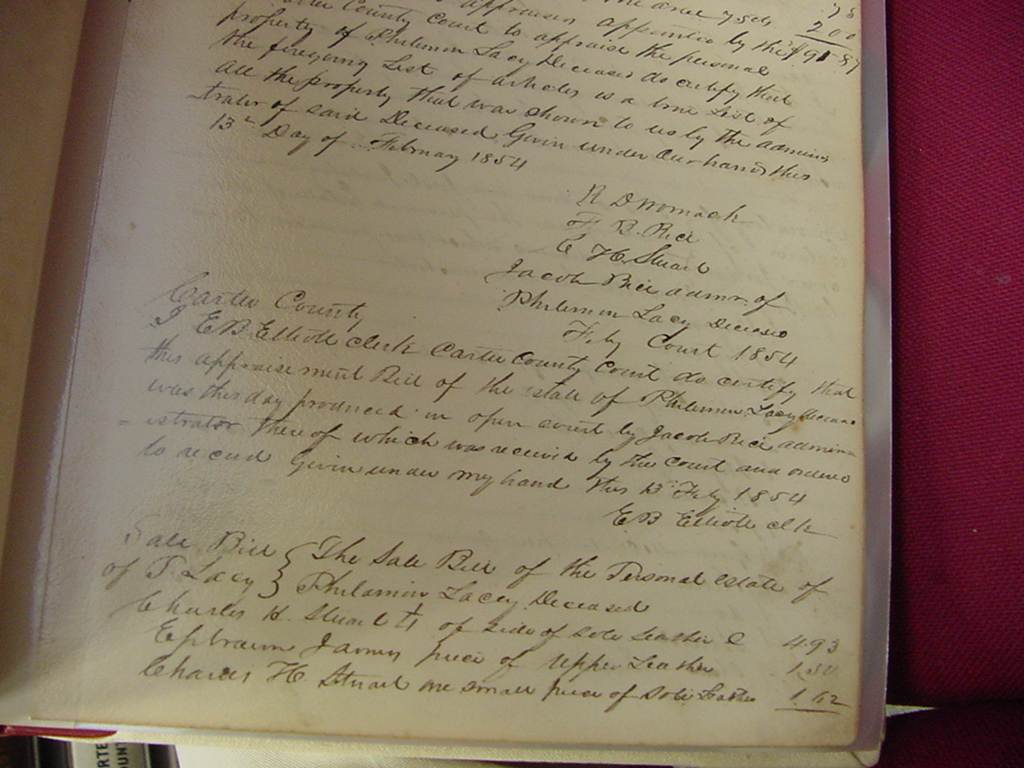 appraisers appointed by the $91-87
Carter County court to appraise the personal 200
property of Philemin Lacy Deceased do certify that
the foregoing List of articles is a true List of
all the property that was shown to us by the adminis
-trator of said Deceased Given under Our hands this
13th Day of February 1854
R D Womack
F R Rice
C H Stuart
Jacob Rice admr. of
Philemin Lacy Deceasd
Feby Court 1854
Carter County
I E B Elliott clerk Carter County Court do certify that
this appraisement Bill of the estate of Philemin Lacy
was this day produced in open court by Jacob Rice admin=
=istrator thereof which was received by the court and ordered
to record Given under my hand this 13 Feby 1854
E B Elliott clk
Sale Bill } The Sale Bill of the Personal estate of
of P Lacy } Philamin Lacey Deceased
Charles H. Stuart of side of sole Leather 4.93
Ephraim James piece of upper Leather 1.50
Charles H Stuart one small piece of Sole Leather 1.62